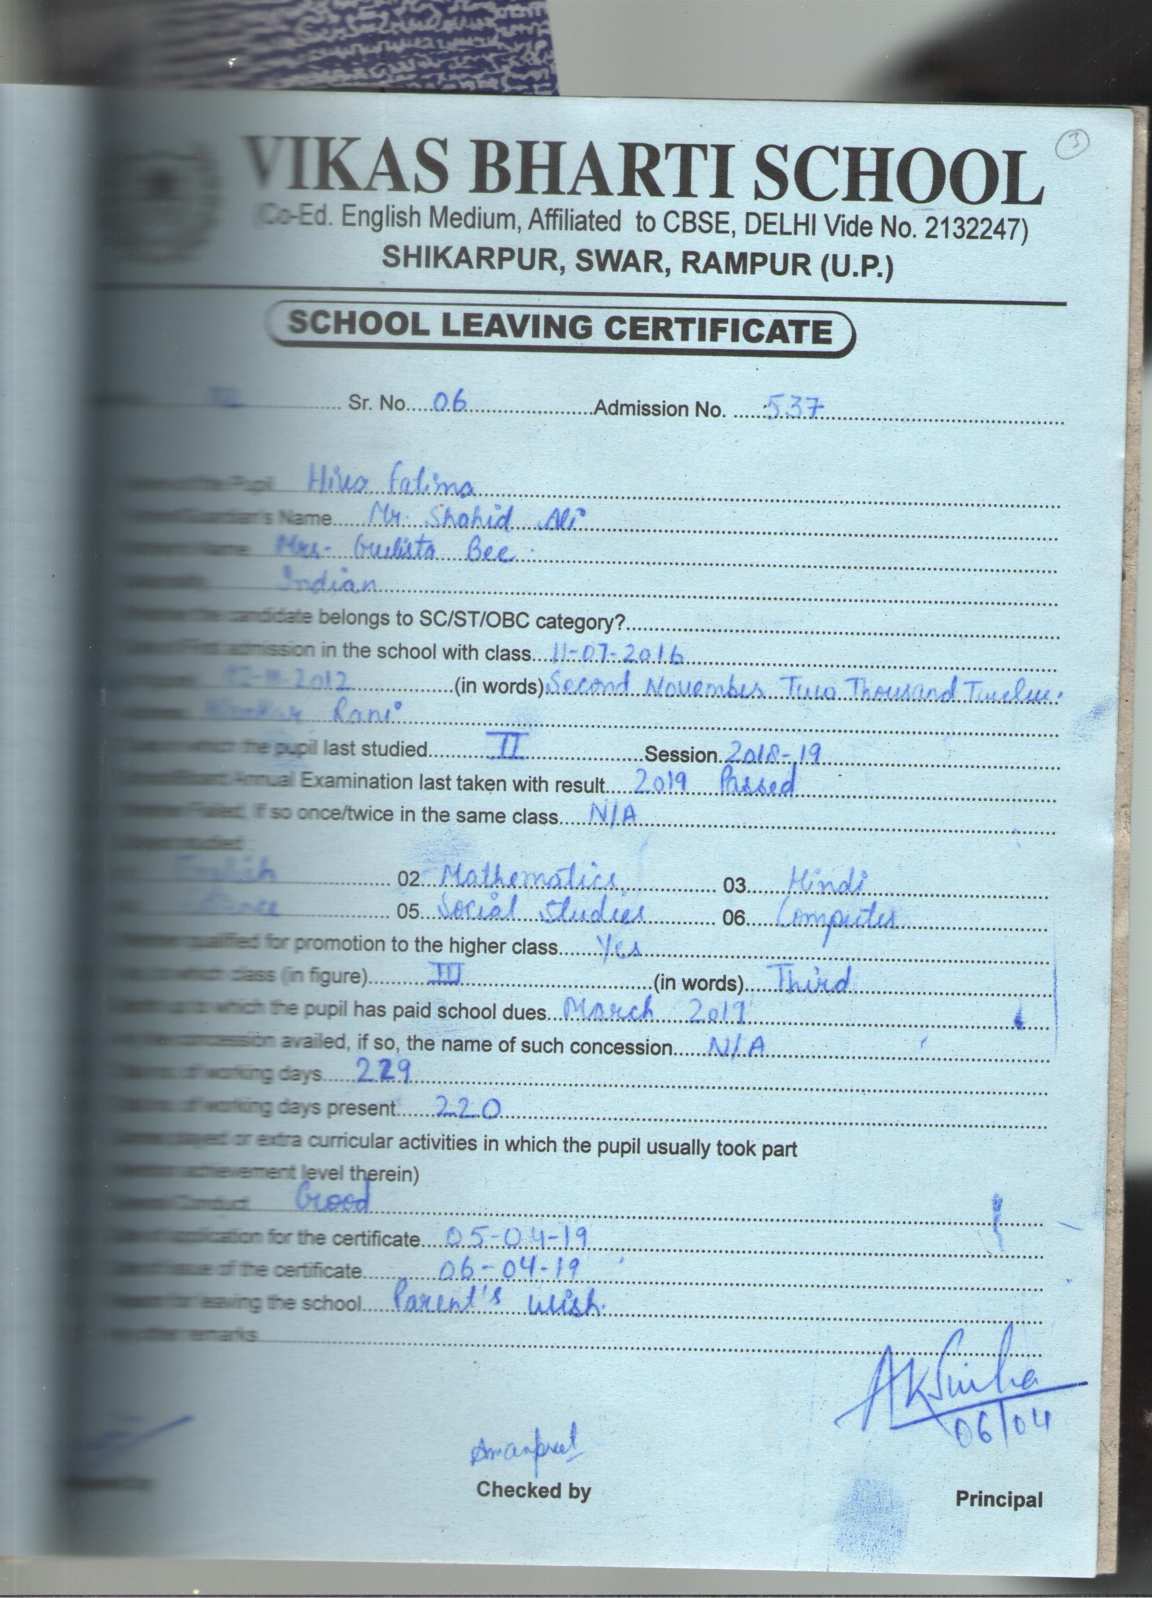 3
VIKAS BHARTI SCHOOL
(Co-Ed. English Medium, Affiliated to CBSE, DELHI Vide No. 2132247)
SHIKARPUR, SWAR, RAMPUR (U.P.)
SCHOOL LEAVING CERTIFICATE
Sr. No. 06 Admission No. 537
the Pupil Hira Fatima
Guardian's Name Mr. Shahid Ali
Name Mrs- Gulista Bee
Indian
the candidate belongs to SC/ST/OBC category?
First admission in the school with class 11-07-2016
02-11-2012 (in words) Second November Two Thousand Twelve.
Rani
which the pupil last studied II Session 2018-19
Annual Examination last taken with result 2019 Passed
Failed, if so once/twice in the same class N/A
studied
English 02 Mathematics 03 Hindi
05 Social Studies 06 Computer
qualified for promotion to the higher class Yes
which class (in figure) III (in words) Third
which the pupil has paid school dues March 2019
concession availed, if so, the name of such concession N/A
of working days 229
of working days present 220
played or extra curricular activities in which the pupil usually took part
achievement level therein)
Conduct Good
application for the certificate 05-04-19
issue of the certificate 06-04-19
for leaving the school Parent's wish.
other remarks
AKSinha
06/04
Amanpreet
Checked by
Principal